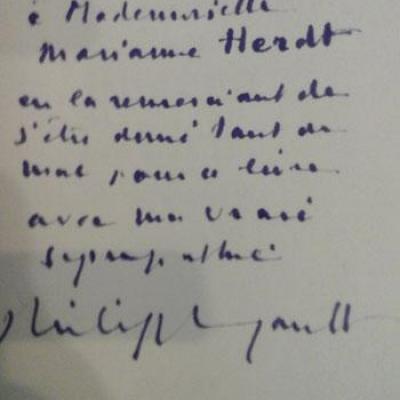 à Mademoiselle
Marianne Herdt
en la remerciant de
s'être donné tant de
mal pour ce livre
avec ma vraie
sympathie
Philippe